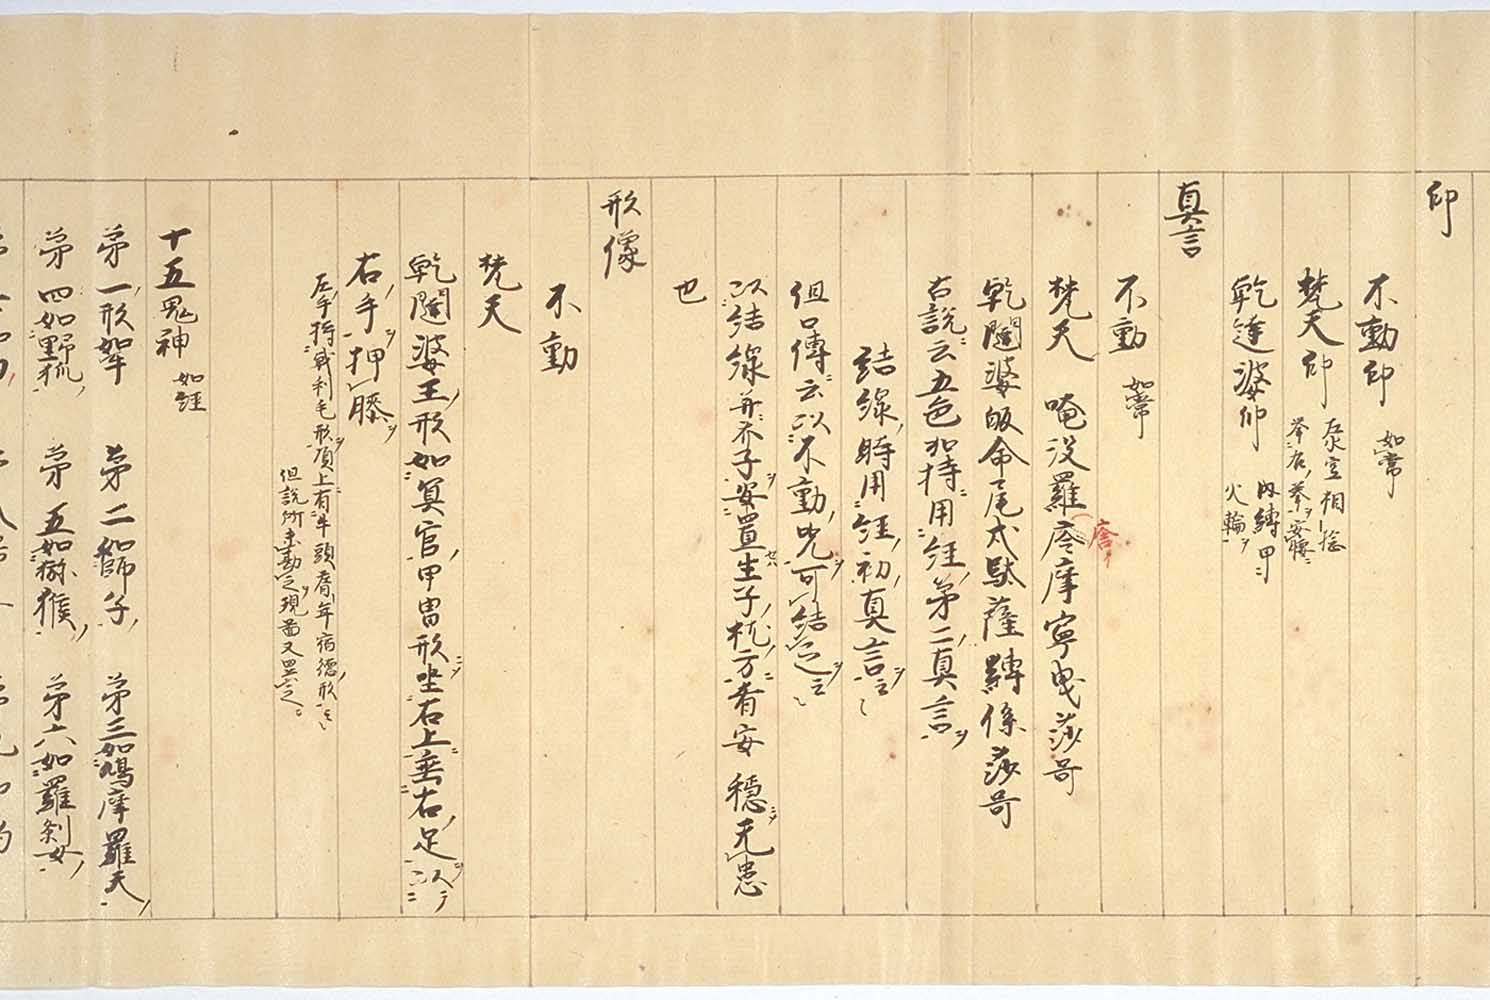 印
不動印 如常
梵天印 左水空相捻
拳右拳安腰
乾達婆印 内縛甲
火輪
真言
不動 如常
梵天 唵没羅唅摩寧曳莎呵
乾闥婆皈命尾戍馱薩縛係莎呵
右説云五色加持用経第二真言
結線時用経初真言云々
但口傳云以不動呪可結之云々
以結線并芥子安置生子枕方者安穏无患
也
形像
不動
梵天
乾闥婆王形如冥官甲冑形坐石上垂右足以
右手押膝
左手持戟利毛形頂上有牛頭 年宿徳形云々
但説所未勘之現啚又異之
十五鬼神 如経
第一形如牛 第二如師子 第三如鳩摩羅天
第四如野狐 第五如猕猴 第六如羅刹女